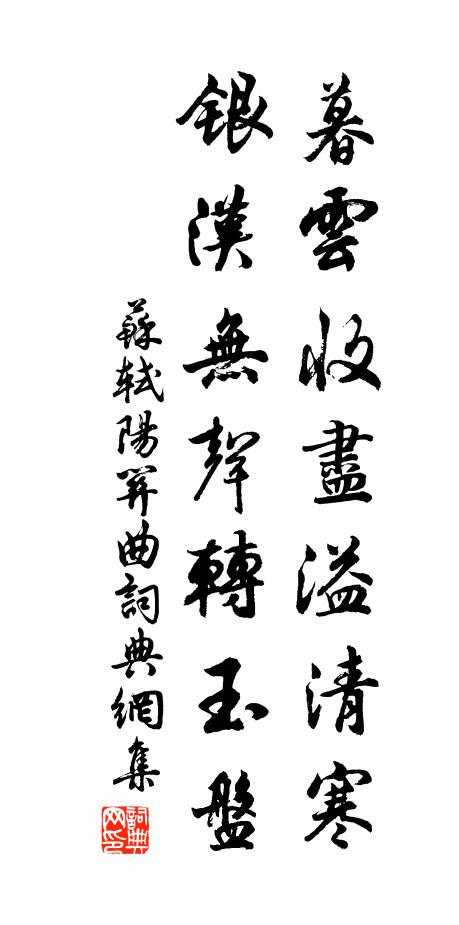 暮雲收盡溢清寒
銀漢無聲轉玉盤
蘇軾陽関曲詞典網集
詞典网印